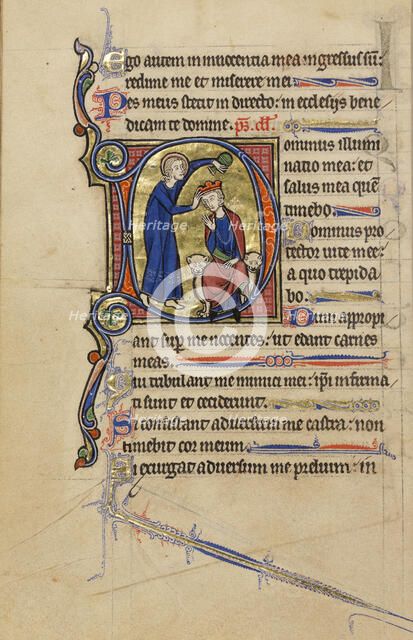 Ego autem in innocencia mea ingressus sum:
redime me et miserere mei.
Pes meus stetit in directo: in ecclesijs bene
dicam te domine. ps. dd.
Dominus illumi
natio mea: et
salus mea quē
timebo.
Dominus pro
tector vite mee:
a quo trepida
bo.
Dum appropi
ant sup me nocentes: ut edant carnes
meas.
Qui tribulant me inimici mei: ipi infirma
ti sunt et ceciderunt.
Si consistant adversum me castra: non
timebit cor meum.
Si exurgat adversum me prelium: in
Heritage
Heritage
Heritage
Images